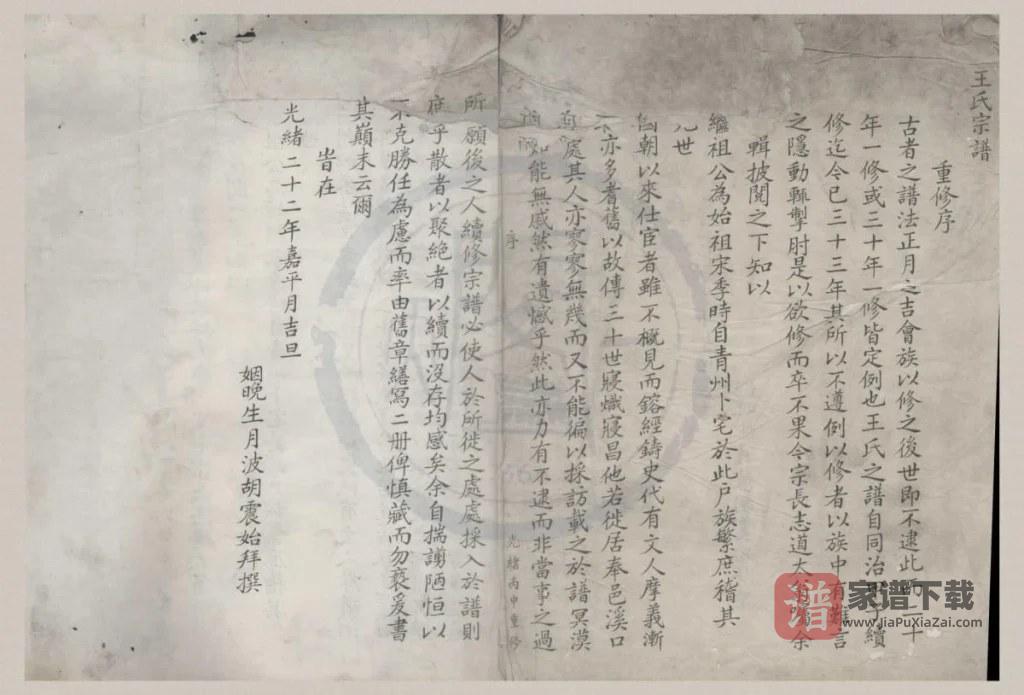 王氏宗譜
重修序
古者之譜法正月之吉會族以修之後世即不逮此而二十
年一修或三十年一修皆定例也王氏之譜自同治續
修迄今已三十三年其所以不遵例以修者以族中有難言
之隱動輒掣肘是以欲修而卒不果今宗長志道太翁囑余
輯披閱之下知以
繼祖公為始祖宋季時自青州卜宅於此戶族繁庶稽其
世
國朝以來仕宦者雖不概見而鎔經鑄史代有文人摩義漸
亦多耆舊以故傳三十世寢熾寢昌他若徙居奉邑溪口
處其人亦寥寥無幾而又不能徧以採訪載之於譜冥漠
能無慼然有遺憾乎然此亦力有不逮而非當事之過
序
光緒丙申重修
所願後之人續修宗譜必使人於所徙之處處採入於譜則
庶乎散者以聚絕者以續而沒存均感矣余自揣謭陋恒以
不克勝任為慮而率由舊章繕寫二册俾慎藏而勿褻爰書
其巔末云爾
旹在
光緒二十二年嘉平月吉旦
姻晚生月波胡震始拜撰
譜
家谱下载
www.JiaPuXiaZai.com